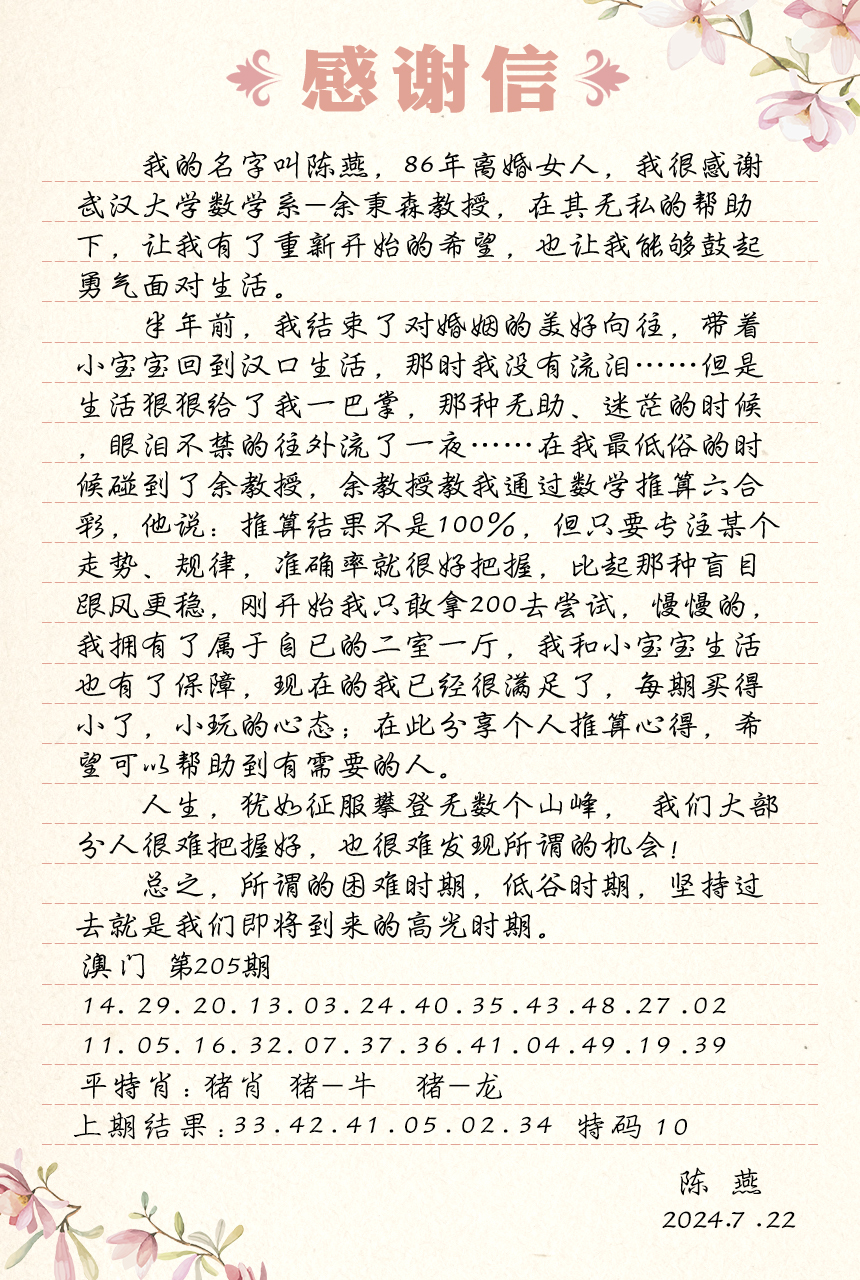 感谢信
我的名字叫陈燕，86年离婚女人，我很感谢
武汉大学数学系—余秉森教授，在其无私的帮助
下，让我有了重新开始的希望，也让我能够鼓起
勇气面对生活。
半年前，我结束了对婚姻的美好向往，带着
小宝宝回到汉口生活，那时我没有流泪……但是
生活狠狠给了我一巴掌，那种无助、迷茫的时候
，眼泪不禁的往外流了一夜……在我最低俗的时
候碰到了余教授，余教授教我通过数学推算六合
彩，他说：推算结果不是100%，但只要专注某个
走势、规律，准确率就很好把握，比起那种盲目
跟风更稳，刚开始我只敢拿200去尝试，慢慢的，
我拥有了属于自已的二室一厅，我和小宝宝生活
也有了保障，现在的我已经很满足了，每期买得
小了，小玩的心态；在此分享个人推算心得，希
望可以帮助到有需要的人。
人生，犹如征服攀登无数个山峰， 我们大部
分人很难把握好，也很难发现所谓的机会！
总之，所谓的困难时期，低谷时期，坚持过
去就是我们即将到来的高光时期。
澳门 第205期
14.29.20.13.03.24.40.35.43.48.27.02
11.05.16.32.07.37.36.41.04.49.19.39
平特肖：猪肖 猪—牛 猪—龙
上期结果：33.42.41.05.02.34 特码 10
陈 燕
2024.7.22